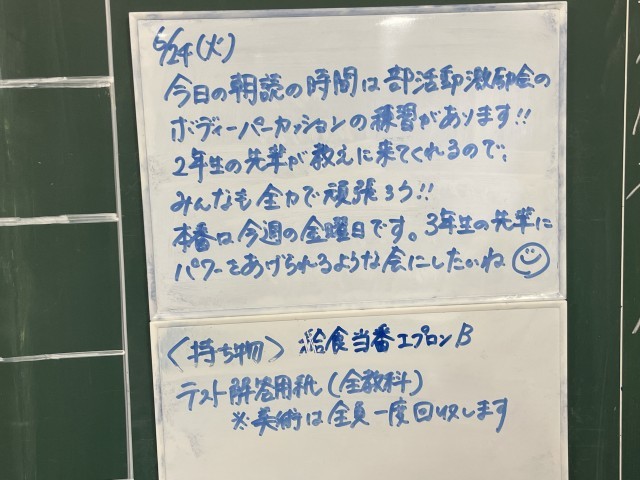 6/24(火)
今日の朝読の時間は部活動激励会の
ボディーパーカッションの練習があります!!
2年生の先輩が教えに来てくれるので、
みんなも全力で頑張ろう!!
本番は今週の金曜日です。3年生の先輩に
パワーをあげられるような会にしたいね
〈持ち物〉 給食当番エプロンB
テスト解答用紙(全教科)
※美術は全員一度回収します